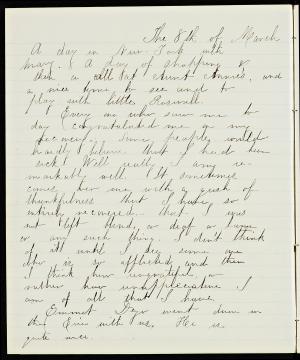 The 8th of March
A day in New York with
mary. A day of shopping &
then a call at Aunt Annie's, and
a nice time to see and to
play with little Roswell.
Every one who saw me to
day congratulated me on my
recovery. Some people would
hardly believe that I had been
sick! Well really I am re-
markably well. It sometimes
comes over me with a gush of
thankfulness that I have so
entirely recovered - that I was
not left blind, or deaf or lame
or any such thing. I don't think
of it until I see some one
who is so afflicted, and then
I think how ungrateful or
rather how unappreciative I
am of all that I have.
Emmet Days went down in
the Erie with us. He is
quite nice.